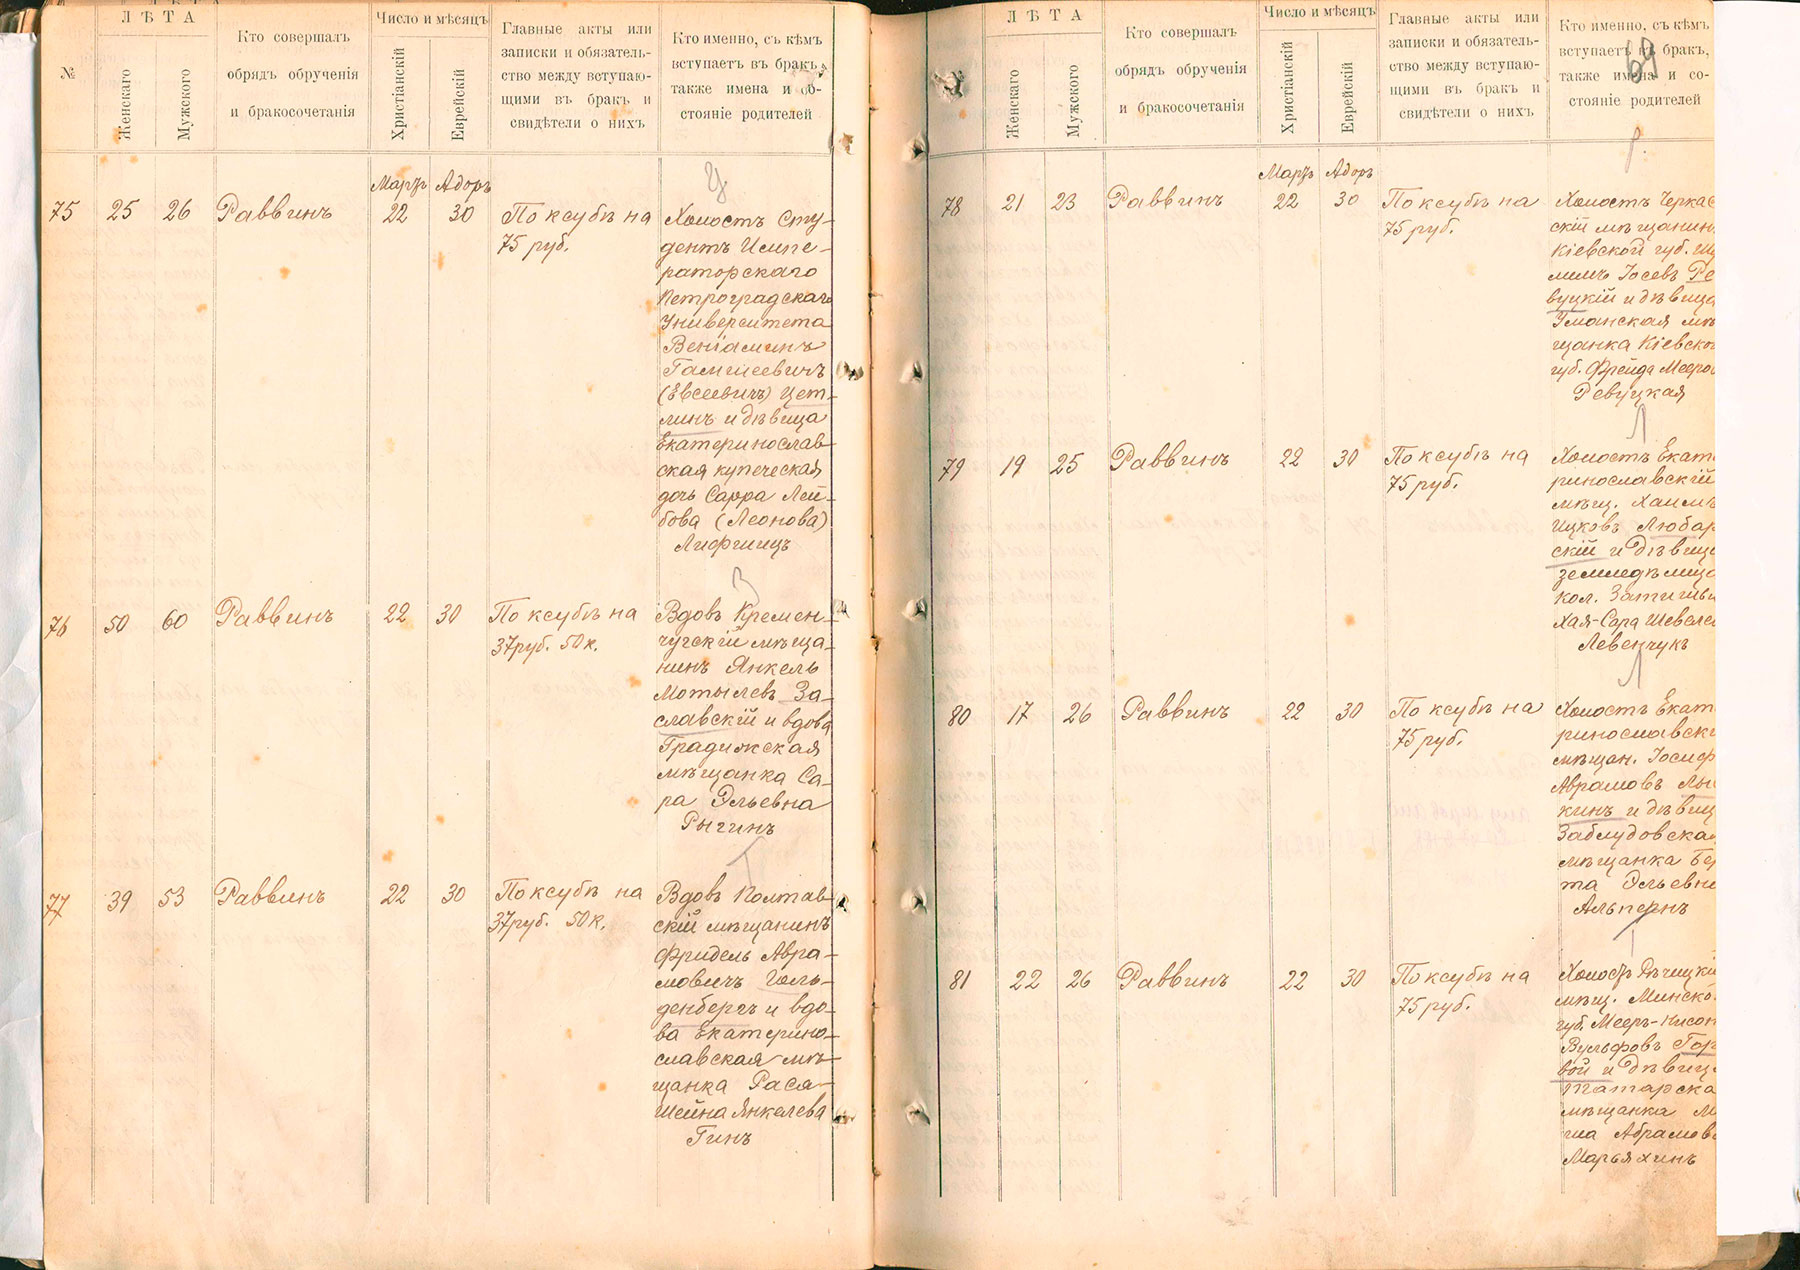 ЛѢТА
Число и мѣсяцъ
№
Женскаго
Мужского
Кто совершалъ
обрядъ обрученія
и бракосочетанія
Христіанскій
Еврейскій
Главные акты или
записки и обязатель-
ство между вступаю-
щими въ бракъ и
свидѣтели о нихъ
Кто именно, съ кѣмъ
вступаетъ въ бракъ,
также имена и со-
стояніе родителей
Мартъ Адоръ
Ц
75 25 26 Раввинъ 22 30 По ксубѣ на
75 руб.
Холостъ сту-
дентъ Импе-
раторскаго
Петроградскаго
Университета
Веніаминъ
Гамшеевичъ
(Евсеевичъ) Цет-
линъ и дѣвица
Екатеринослав-
ская купеческая
дочь Сарра Лей-
бова (Леонова)
Лифшицъ
З
76 50 60 Раввинъ 22 30 По ксубѣ на
37 руб. 50 к.
Вдовъ Кремен-
чугскій мѣща-
нинъ Янкель
Мотылевъ За-
славскій и вдова
Градижская
мѣщанка Са-
ра Эльевна
Рыгинъ
Г
77 39 53 Раввинъ 22 30 По ксубѣ на
37 руб. 50 к.
Вдовъ Полтав-
скій мѣщанинъ
Фридель Авра-
мовичъ Голь-
денбергъ и вдо-
ва Екатерино-
славская мѣ-
щанка Рася-
Шейна Янкелева
Гинъ
ЛѢТА
Число и мѣсяцъ
Женскаго
Мужского
Кто совершалъ
обрядъ обрученія
и бракосочетанія
Христіанскій
Еврейскій
Главные акты или
записки и обязатель-
ство между вступаю-
щими въ бракъ и
свидѣтели о нихъ
Кто именно, съ кѣмъ
вступаетъ въ бракъ,
также имена и со-
стояніе родителей
69
Р
Мартъ Адоръ
78 21 23 Раввинъ 22 30 По ксубѣ на
75 руб.
Холостъ Черкас
скій мѣщанинъ
Кіевской губ. Шу
лимъ Іосевъ Ре
вуцкій и дѣвица
Уманская мѣ
щанка Кіевской
губ. Фрейда Мееро
Ревуцкая
Л
79 19 25 Раввинъ 22 30 По ксубѣ на
75 руб.
Холостъ Екате
ринославскій
мѣщ. Хаимъ
Ицковъ Любар
скій и дѣвица
земледѣлица
кол. Затишья
Хая-Сара Шевеле
Левенчукъ
Л
80 17 26 Раввинъ 22 30 По ксубѣ на
75 руб.
Холостъ Екат
ринославскі
мѣщан. Іосиф
Аврамовъ Лы
кинъ и дѣвиц
Заблудовская
мѣщанка Бер
та Эльевна
Альпернъ
Г
81 22 26 Раввинъ 22 30 По ксубѣ на
75 руб.
Холостъ Рѣчицкій
мѣщ. Минской
губ. Мееръ-Нисон
Вульфовъ Гор
вой и дѣвица
Татарска
мѣщанка М
Абрамова
Марьяхинъ